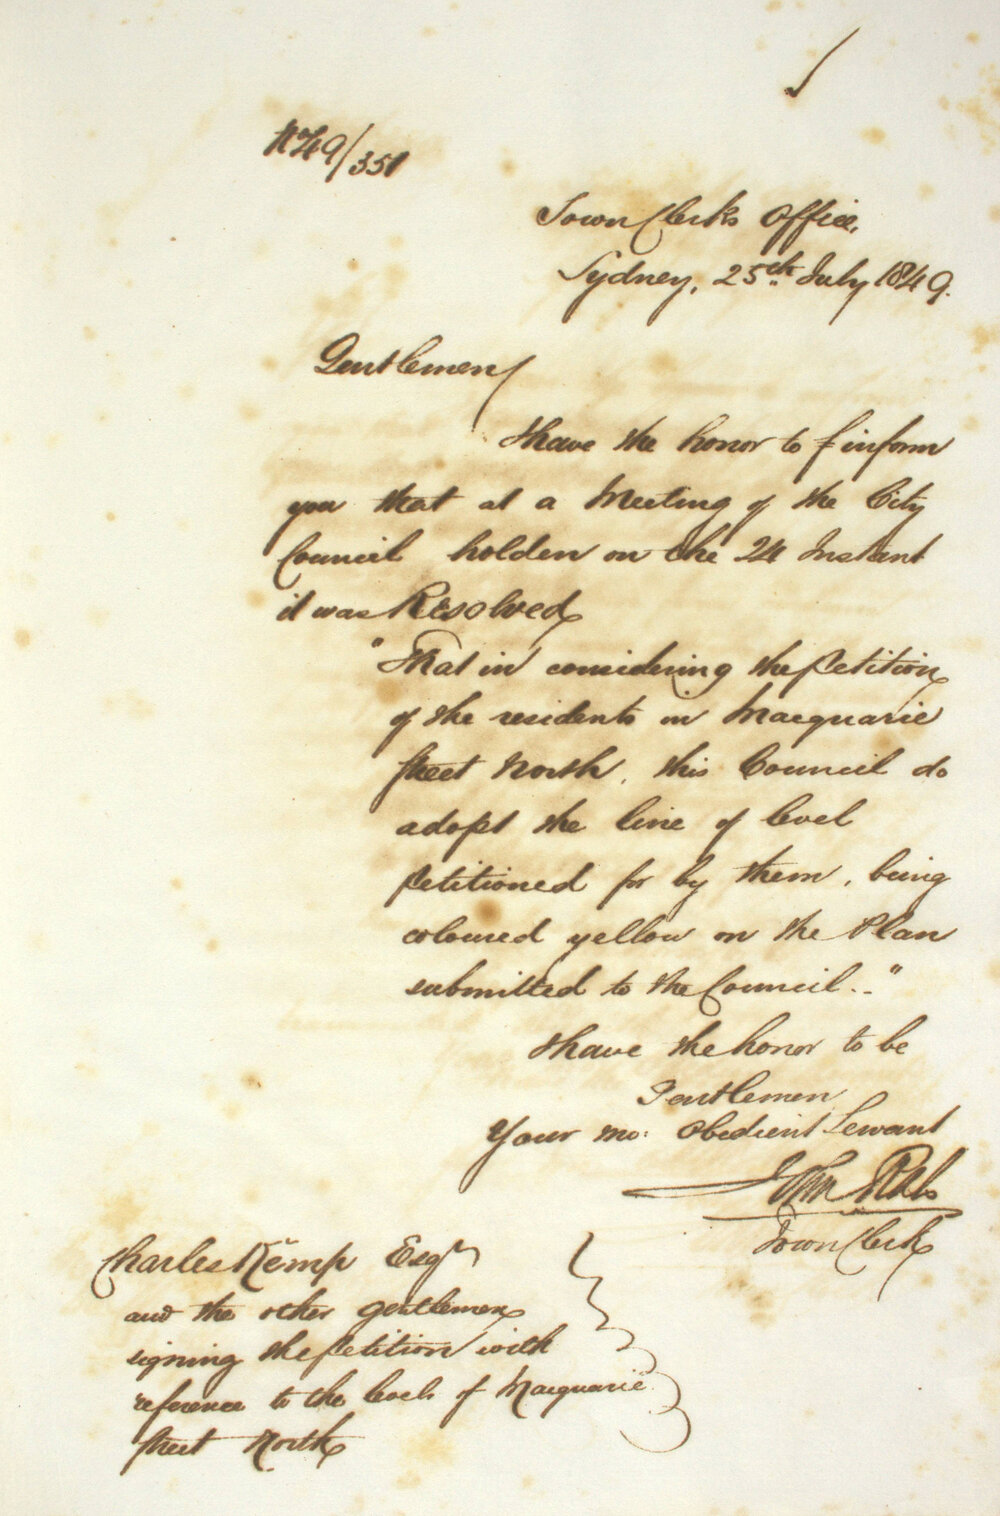 No 49/351
Town Clerk's Office,
Sydney, 25th July 1849.
Gentlemen
I have the honor to inform
you that at a Meeting of the City
Council holden on the 24 Instant
it was Resolved
"That in considering the Petition
of the residents in Macquarie
Street North, this Council do
adopt the line of level
petitioned for by them, being
coloured yellow on the Plan
submitted to the Council.."
I have the honor to be
Gentlemen
Your mo: Obedient Servant
John Rae
Town Clerk
Charles Kemp Esqr
and the other gentlemen
signing the petition with
reference to the levels of Macquarie
Street North